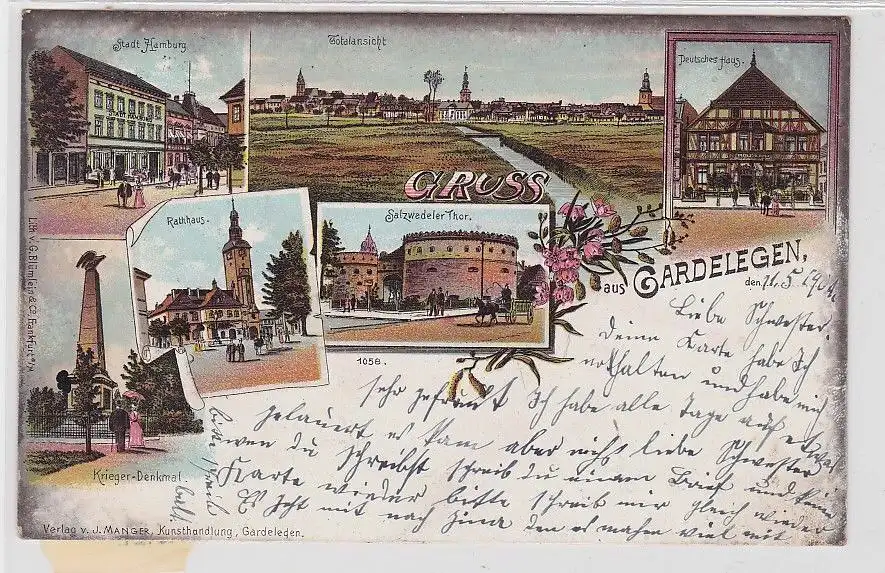 Stadt Hamburg
Totalansicht
Deutsches Haus.
GRUSS
aus GARDELEGEN,
den 11. 5. 1904.
Rathhaus.
Salzwedeler Thor.
1058.
Krieger-Denkmal.
Lith v. G. Blümlein & Co. Frankfurt a/M
Verlag v. J. MANGER, Kunsthandlung, Gardeleden.
Liebe Schwester.
Deine Karte habe Ich
erhalten und habe mich
sehr gefreut Ich habe alle Tage auf etwas
gelauert es kam aber nicht liebe Schwester
wen du schreibst schreib du einen Brief und keine
Karte wieder bitte schreib mir gleich wieder
mit nach den es mit
bitte schreib
bald.